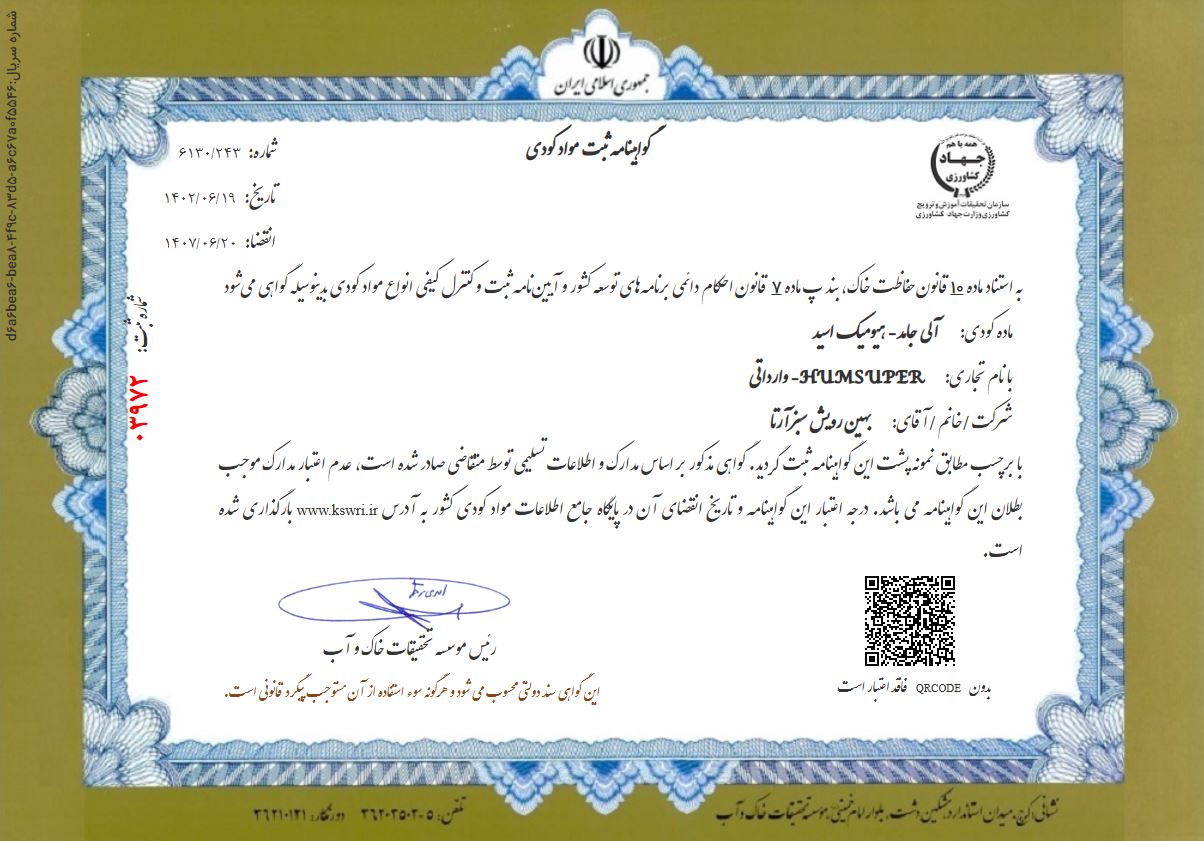 جمهوری اسلامی ایران
همه با هم
جهاد
کشاورزی
سازمان تحقیقات آموزش و ترویج
کشاورزی وزارت جهاد کشاورزی
گواهینامه ثبت مواد کودی
شماره: ۶۱۳۰/۲۴۳
تاریخ: ۱۴۰۲/۰۶/۱۹
انقضا: ۱۴۰۷/۰۶/۲۰
به استناد ماده ۱۰ قانون حفاظت خاک، بند پ ماده ۷ قانون احکام دائمی برنامه های توسعه کشور و آیین نامه ثبت و کنترل کیفی انواع مواد کودی بدینوسیله گواهی می شود
ماده کودی: آلی جامد - هیومیک اسید
با نام تجاری: HUMSUPER- وارداتی
شرکت / خانم / آقای: بهین رویش سبز آرتا
با برچسب مطابق نمونه پشت این گواهینامه ثبت گردید. گواهی مذکور بر اساس مدارک و اطلاعات تسلیمی توسط متقاضی صادر شده است، عدم اعتبار مدارک موجب
بطلان این گواهینامه می باشد. درجه اعتبار این گواهینامه و تاریخ انقضای آن در پایگاه جامع اطلاعات مواد کودی کشور به آدرس www.kswri.ir بارگذاری شده
است.
شماره ثبت: ۰۳۹۷۲
رئیس موسسه تحقیقات خاک و آب
این گواهی سند دولتی محسوب می شود و هرگونه سوء استفاده از آن مستوجب پیگرد قانونی است.
بدون QRCODE فاقد اعتبار است
نشانی: کرج، میدان استاندارد، مشکین دشت، بلوار امام خمینی، مؤسسه تحقیقات خاک و آب
تلفن: ۵-۳۶۲۰۳۵۰۲ دورنگار: ۳۶۲۱۰۱۲۱
شماره سریال: d۶a۶bea۶-bea۸-۴f۹c-۸۳d۵-a۶c۶۷a۰f۵۵۴۶